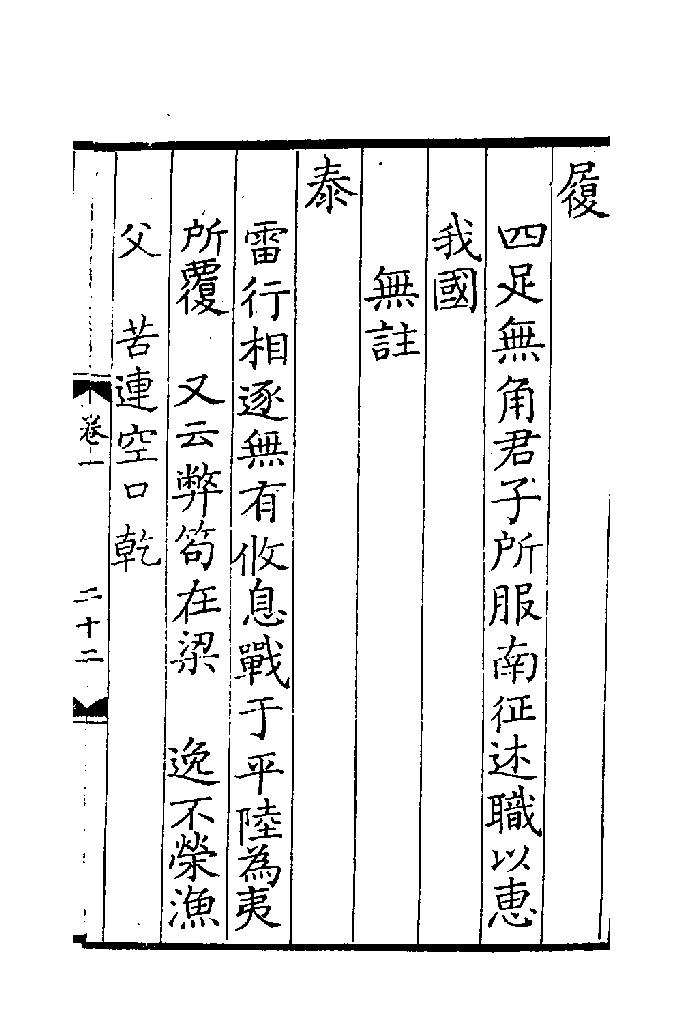 履
四足無角君子所服南征述職以恵
我國
無註
泰
雷行相逐無有攸息戰于平陸為夷
所覆　又云弊笱在梁　逸不榮漁
父　苦連空口乾
卷一
二十二